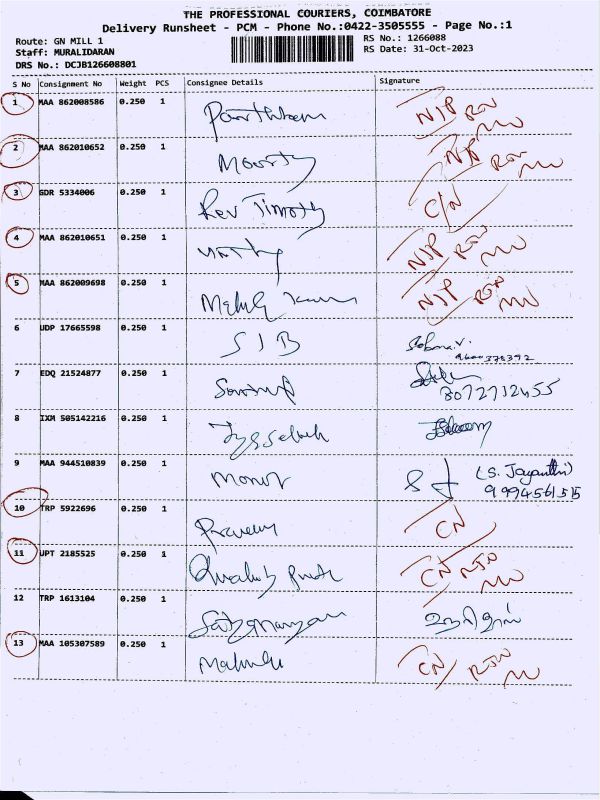 THE PROFESSIONAL COURIERS, COIMBATORE
Delivery Runsheet - PCM - Phone No.:0422-3505555 - Page No.:1
Route: GN MILL 1
Staff: MURALIDARAN
DRS No.: DCJB126608801
RS No.: 1266088
RS Date: 31-Oct-2023
S No Consignment No Weight PCS Consignee Details Signature
1 MAA 862008586 0.250 1 N/P
2 MAA 862010652 0.250 1 Moorthy N/P
3 GDR 5334006 0.250 1 Rev Timothy C/N
4 MAA 862010651 0.250 1 N/P
5 MAA 862009698 0.250 1 N/P
6 UDP 17665598 0.250 1 SIB
9600378392
7 EDQ 21524877 0.250 1
8072712455
8 IXM 505142216 0.250 1
9 MAA 944510839 0.250 1 (S. Jayanthi)
9994561515
10 TRP 5922696 0.250 1 Praveen CN
11 UPT 2185525 0.250 1 CN RTN
12 TRP 1613104 0.250 1 Sathyanarayanan
13 MAA 105307589 0.250 1 CN RTN